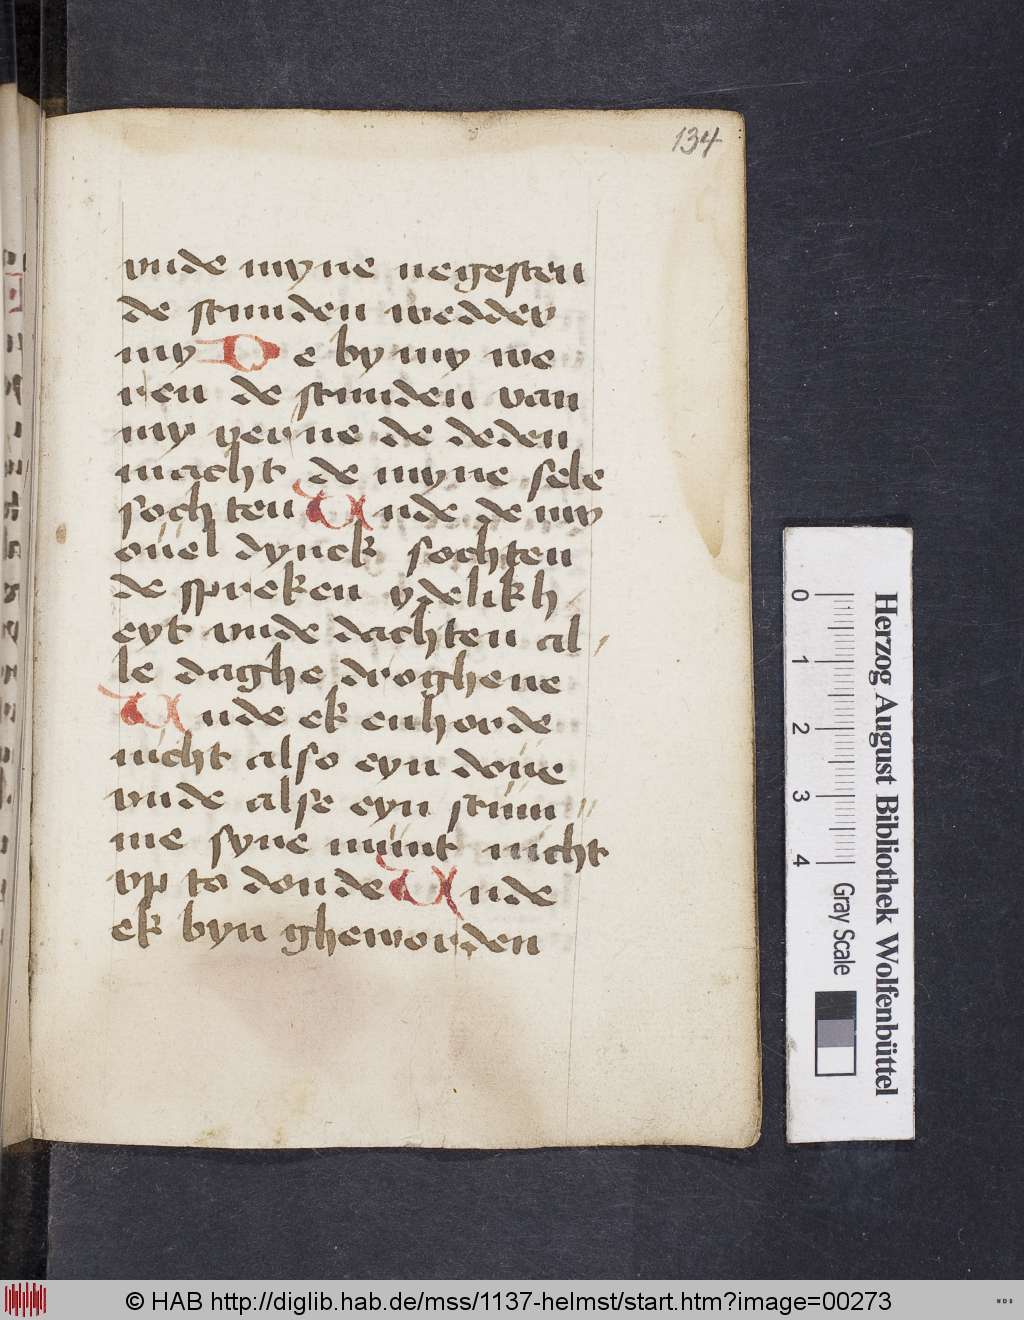 134
vnde myne negesten
de stunden wedder
my De by my we
ren de stunden van
my verne de deden
macht de myne sele
sochten Vnde de my
ouel dynck sochten
de spreken ydelikh
eyt vnde dachten al
le daghe droghene
Vnde ek enhorde
nicht also eyn doue
vnde alse eyn stum
me syne munt nicht
vp to donde Vnde
ek byn gheworden
Herzog August Bibliothek Wolfenbüttel
0 1 2 3 4 Gray Scale
© HAB http://diglib.hab.de/mss/1137-helmst/start.htm?image=00273